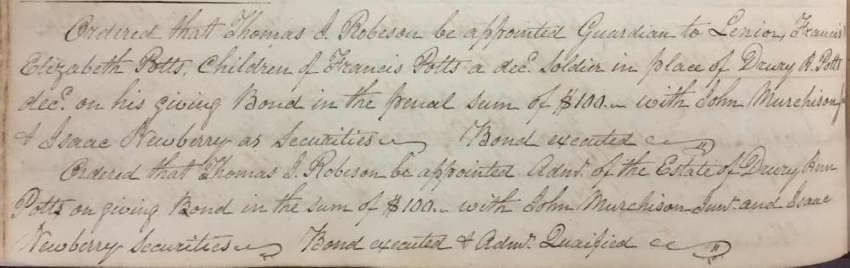 Ordered that Thomas J. Robeson be appointed Guardian to Lenior, Francis
Elizabeth Potts, Children of Francis Potts a decd. Soldier in place of Drury A. Potts
decd. on his giving Bond in the penal sum of $100.— with John Murchison
& Isaac Newberry as Securities — Bond executed
Ordered that Thomas J. Robeson be appointed Admr. of the Estate of Drury Ann
Potts on giving Bond in the sum of $100.— with John Murchison Junr. and Isaac
Newberry Securities — Bond executed & Admr. Quaified